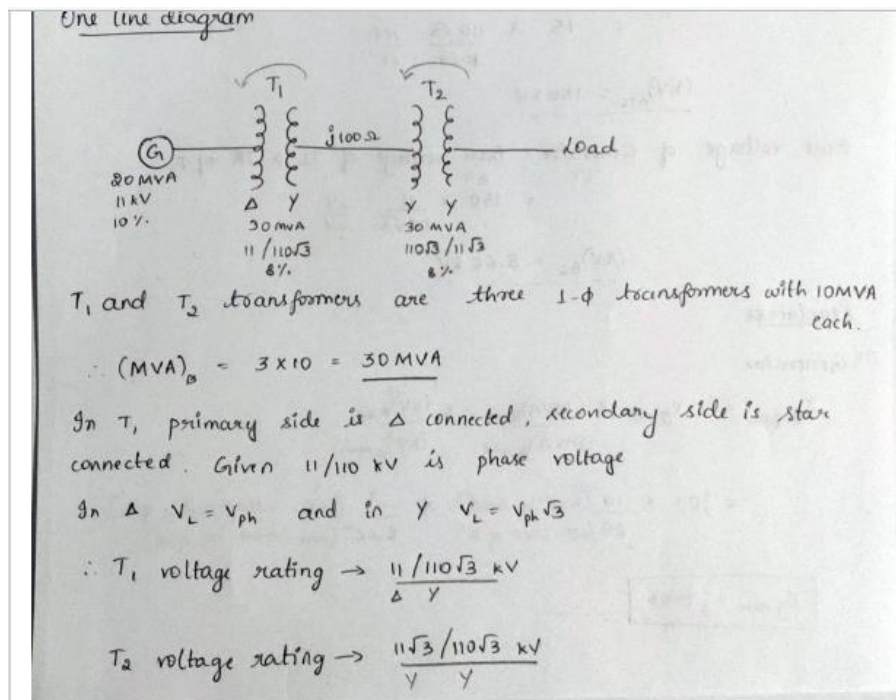 One line diagram
T₁
T₂
G
j100Ω
Load
20 MVA
11 kV
10 %.
Δ Y
30 MVA
11 / 110√3
8 %.
Y Y
30 MVA
110√3 / 11√3
8 %.
T₁ and T₂ transformers are three 1-ϕ transformers with 10MVA
each.
∴ (MVA)B = 3 x 10 = 30 MVA
In T₁ primary side is Δ connected, secondary side is star
connected. Given 11/110 kV is phase voltage
In Δ VL = Vph and in Y VL = Vph √3
∴ T₁ voltage rating → 11 / 110√3 kV
Δ Y
T₂ voltage rating → 11√3 / 110√3 kV
Y Y